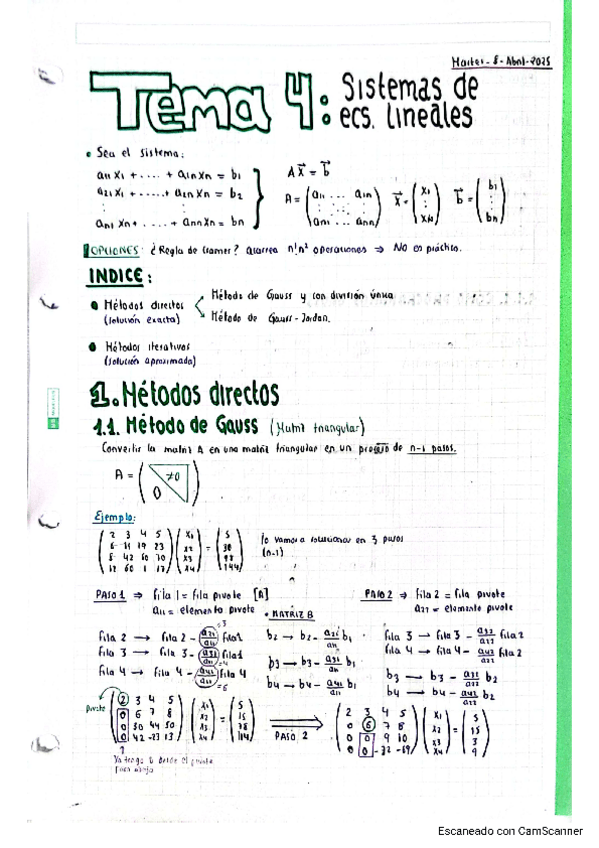 Martes - 8 - Abril - 2025
Tema 4: Sistemas de ecs. lineales
• Sea el sistema:
a11 x1 + .... + a1n xn = b1
a21 x1 + ..... + a2n xn = b2
⋮
an1 xn + ..... + ann xn = bn
A x⃗ = b⃗
A = (a11 ... a1n ⋮ an1 ... ann) x⃗ = (x1 ⋮ xn) b⃗ = (b1 ⋮ bn)
OPCIONES: ¿Regla de Cramer? Acarrea n! n² operaciones ⇒ NO es práctico.
INDICE:
• Métodos directos (solución exacta)
Método de Gauss y con división única
Método de Gauss - Jordan.
• Métodos iterativos
(solución aproximada)
1. Métodos directos
1.1. Método de Gauss (Matriz triangular)
Convertir la matriz A en una matriz triangular en un proceso de n-1 pasos.
A = ( ≠0 0 )
Ejemplo:
2 3 4 5 x1 5
x2 = 30
x3
x4
lo vamos a solucionar en 3 pasos
(n-1)
PASO 1 ⇒ fila 1 = fila pivote [A]
a11 = elemento pivote • MATRIZ B
PASO 2 ⇒ fila 2 = fila pivote
a22 = elemento pivote
fila 2 → fila 2 - a21/a11 fila 1 =3
fila 3 → fila 3 - a31/a11 fila 1 =4
fila 4 → fila 4 - a41/a11 fila 4 =6
b2 → b2 - a21/a11 b1
b3 → b3 - a31/a11 b1
b4 → b4 - a41/a11 b1
fila 3 → fila 3 - a32/a22 fila 2
fila 4 → fila 4 - a42/a22 fila 2
b3 → b3 - a32/a22 b2
b4 → b4 - a42/a22 b2
pivote
2 3 4 5 x1 5
0 6 7 8 x2 = 15
0 30 44 50 x3 78
0 42 -23 13 x4
PASO 2
2 3 4 5 x1 5
0 6 7 8 x2 = 15
0 0 9 10 x3 3
0 0 x4 9
Ya tengo 0 desde el pivote
para abajo
Escaneado con CamScanner